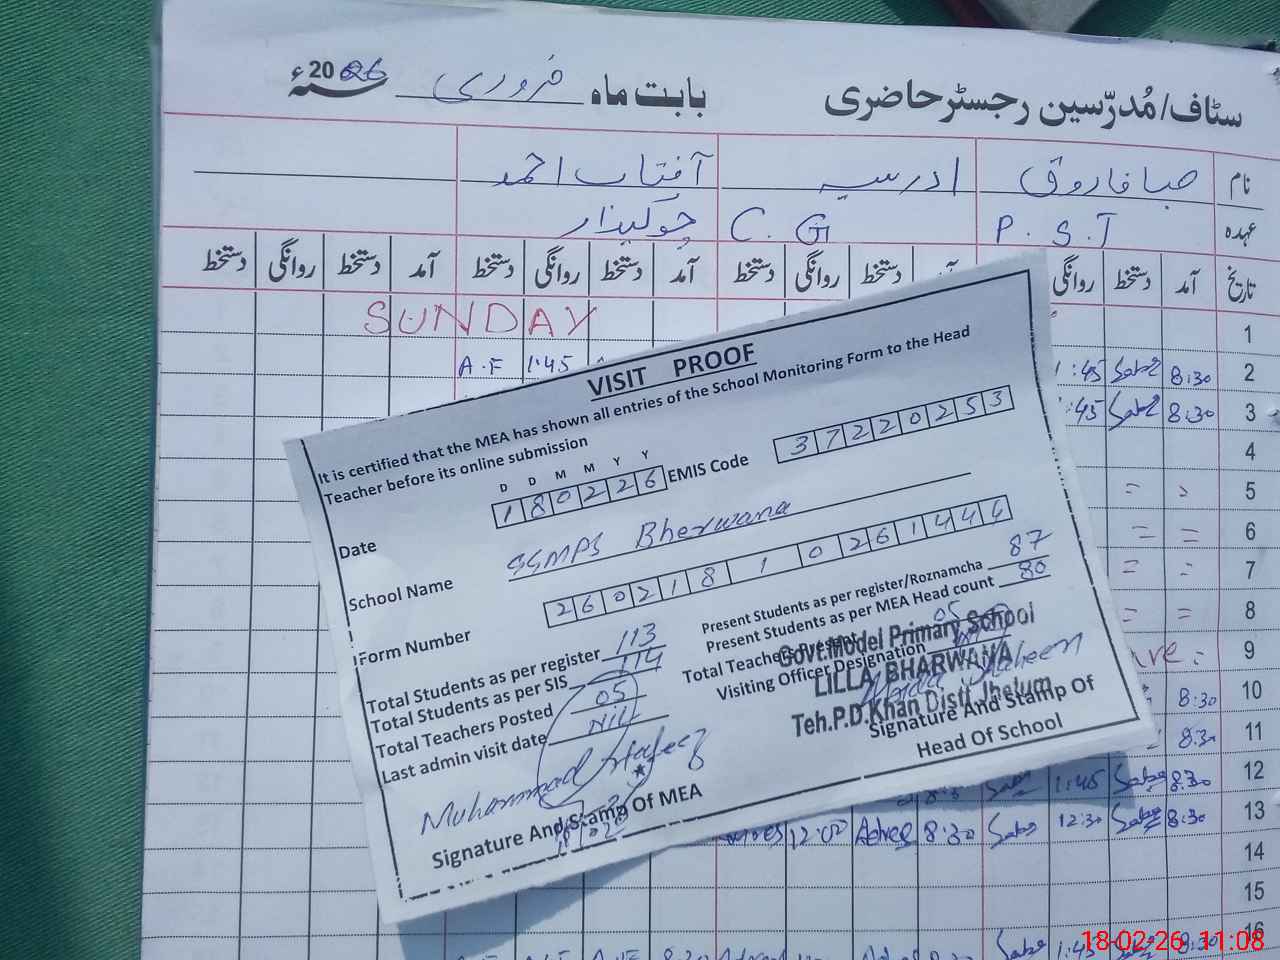 سٹاف/مُدرّسین رجسٹر حاضری بابت ماہ فروری سنہ 2026ء
نام صبا فاروق ادریسہ آفتاب احمد
عہدہ P.S.T C.G چوکیدار
تاریخ آمد دستخط روانگی دستخط روانگی دستخط آمد دستخط روانگی دستخط آمد دستخط روانگی دستخط
1 SUNDAY
2 8:30 Saba 1:45 1:45 A.F
3 8:30 Saba 1:45
4
5
6 = =
7
8 = =
9
10 8:30
11 8:30
12 8:30 Saba 1:45
13 8:30 Saba 12:30 Saba 8:30 Adrees 12:00
14
15
16 8:30 Saba 1:45
VISIT PROOF
It is certified that the MEA has shown all entries of the School Monitoring Form to the Head
Teacher before its online submission
D D M M Y Y
Date 180226 EMIS Code 37220253
School Name GGMPS Bherwana
Form Number 26021810261444
Total Students as per register 113
Total Students as per SIS 114
Total Teachers Posted 05
Last admin visit date NIL
Present Students as per register/Roznamcha 87
Present Students as per MEA Head count 80
Total Teachers Present 05
Visiting Officer Designation
Govt.Model Primary School
LILLA BHARWANA
Teh.P.D.Khan Distt Jhelum
Muhammad Hafeez
Signature And Stamp Of MEA
Signature And Stamp Of
Head Of School
18-02-26 11:08